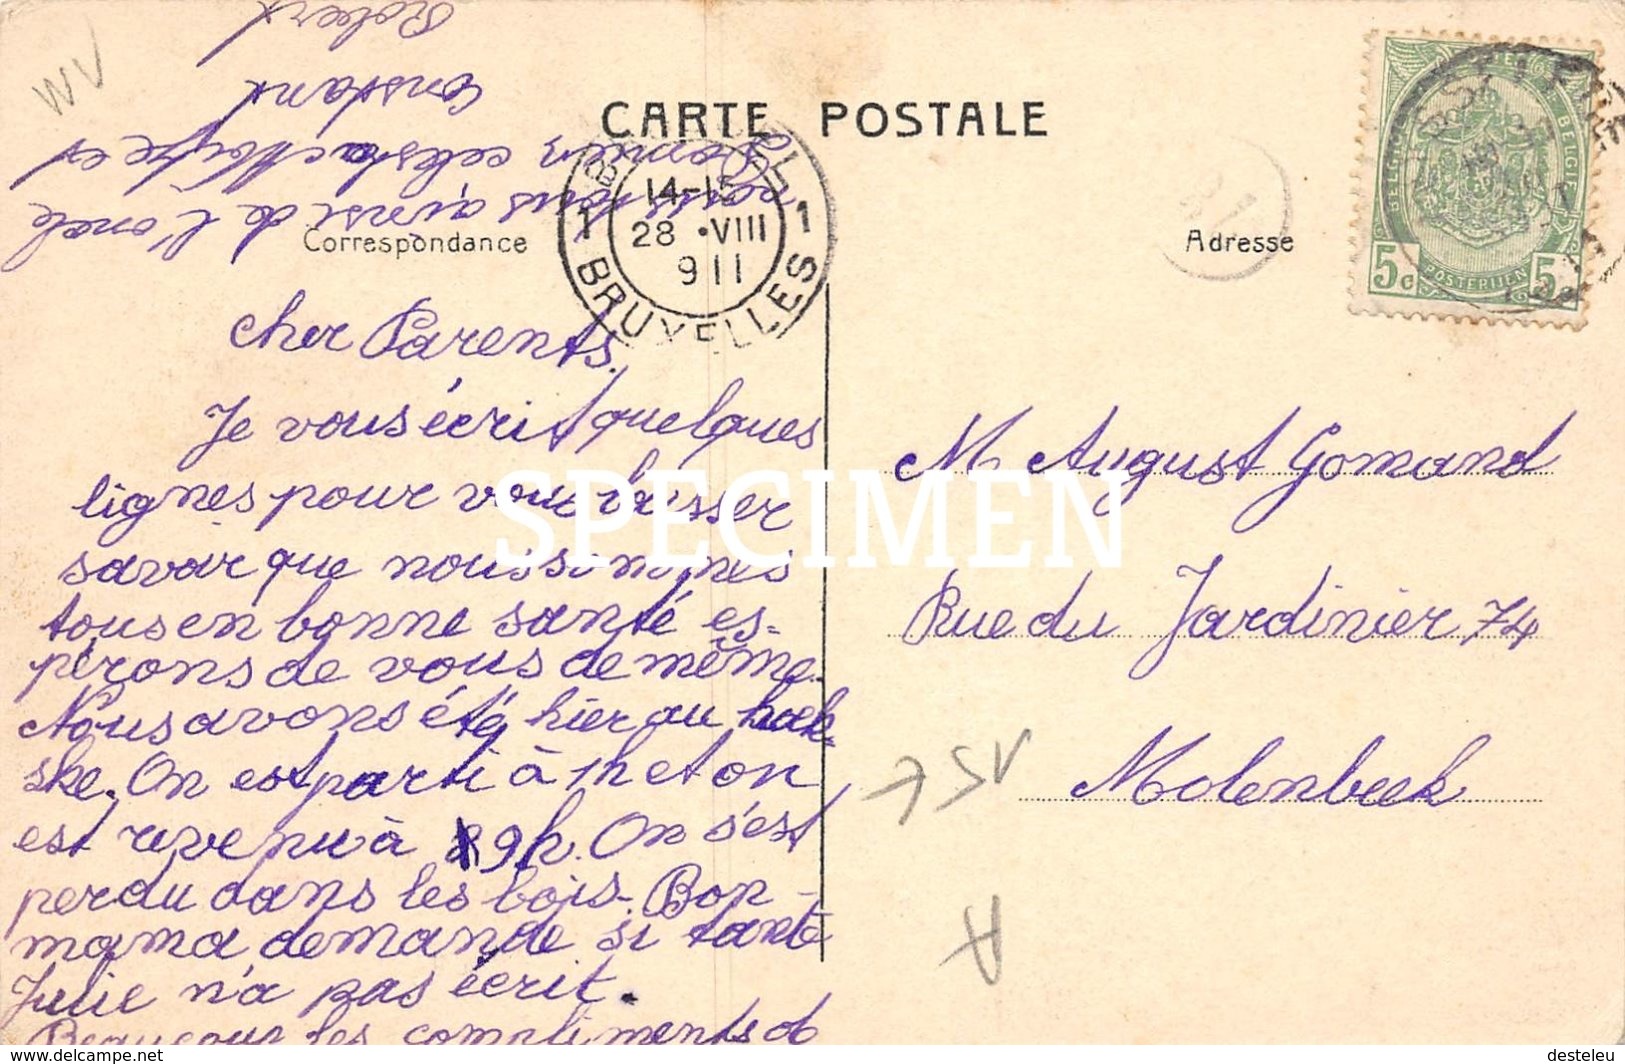 CARTE POSTALE
Correspondance
Adresse
14-15
28 •VIII
911
1 BRUXELLES 1
5c 5c
POSTERIJEN
BELGIË BELGIQUE
Cher Parents.
Je vous écrit quelques
lignes pour vous laisser
savoir que nous sommes
tous en bonne santé es-
pérons de vous de même.
Nous avons été hier au hoek-
ske. On est parti à 1h et on
est revenu à 9h. On s'est
perdu dans les bois. Bon-
mama demande si tante
Julie n'a pas écrit.
Beaucoup les compliments de
nous tous ainsi de l'oncle
et
Constant
Robert
M August Gomand
Rue du Jardinier 74
Molenbeek
WV
A
SPECIMEN
https://www.delcampe.net
desteleu